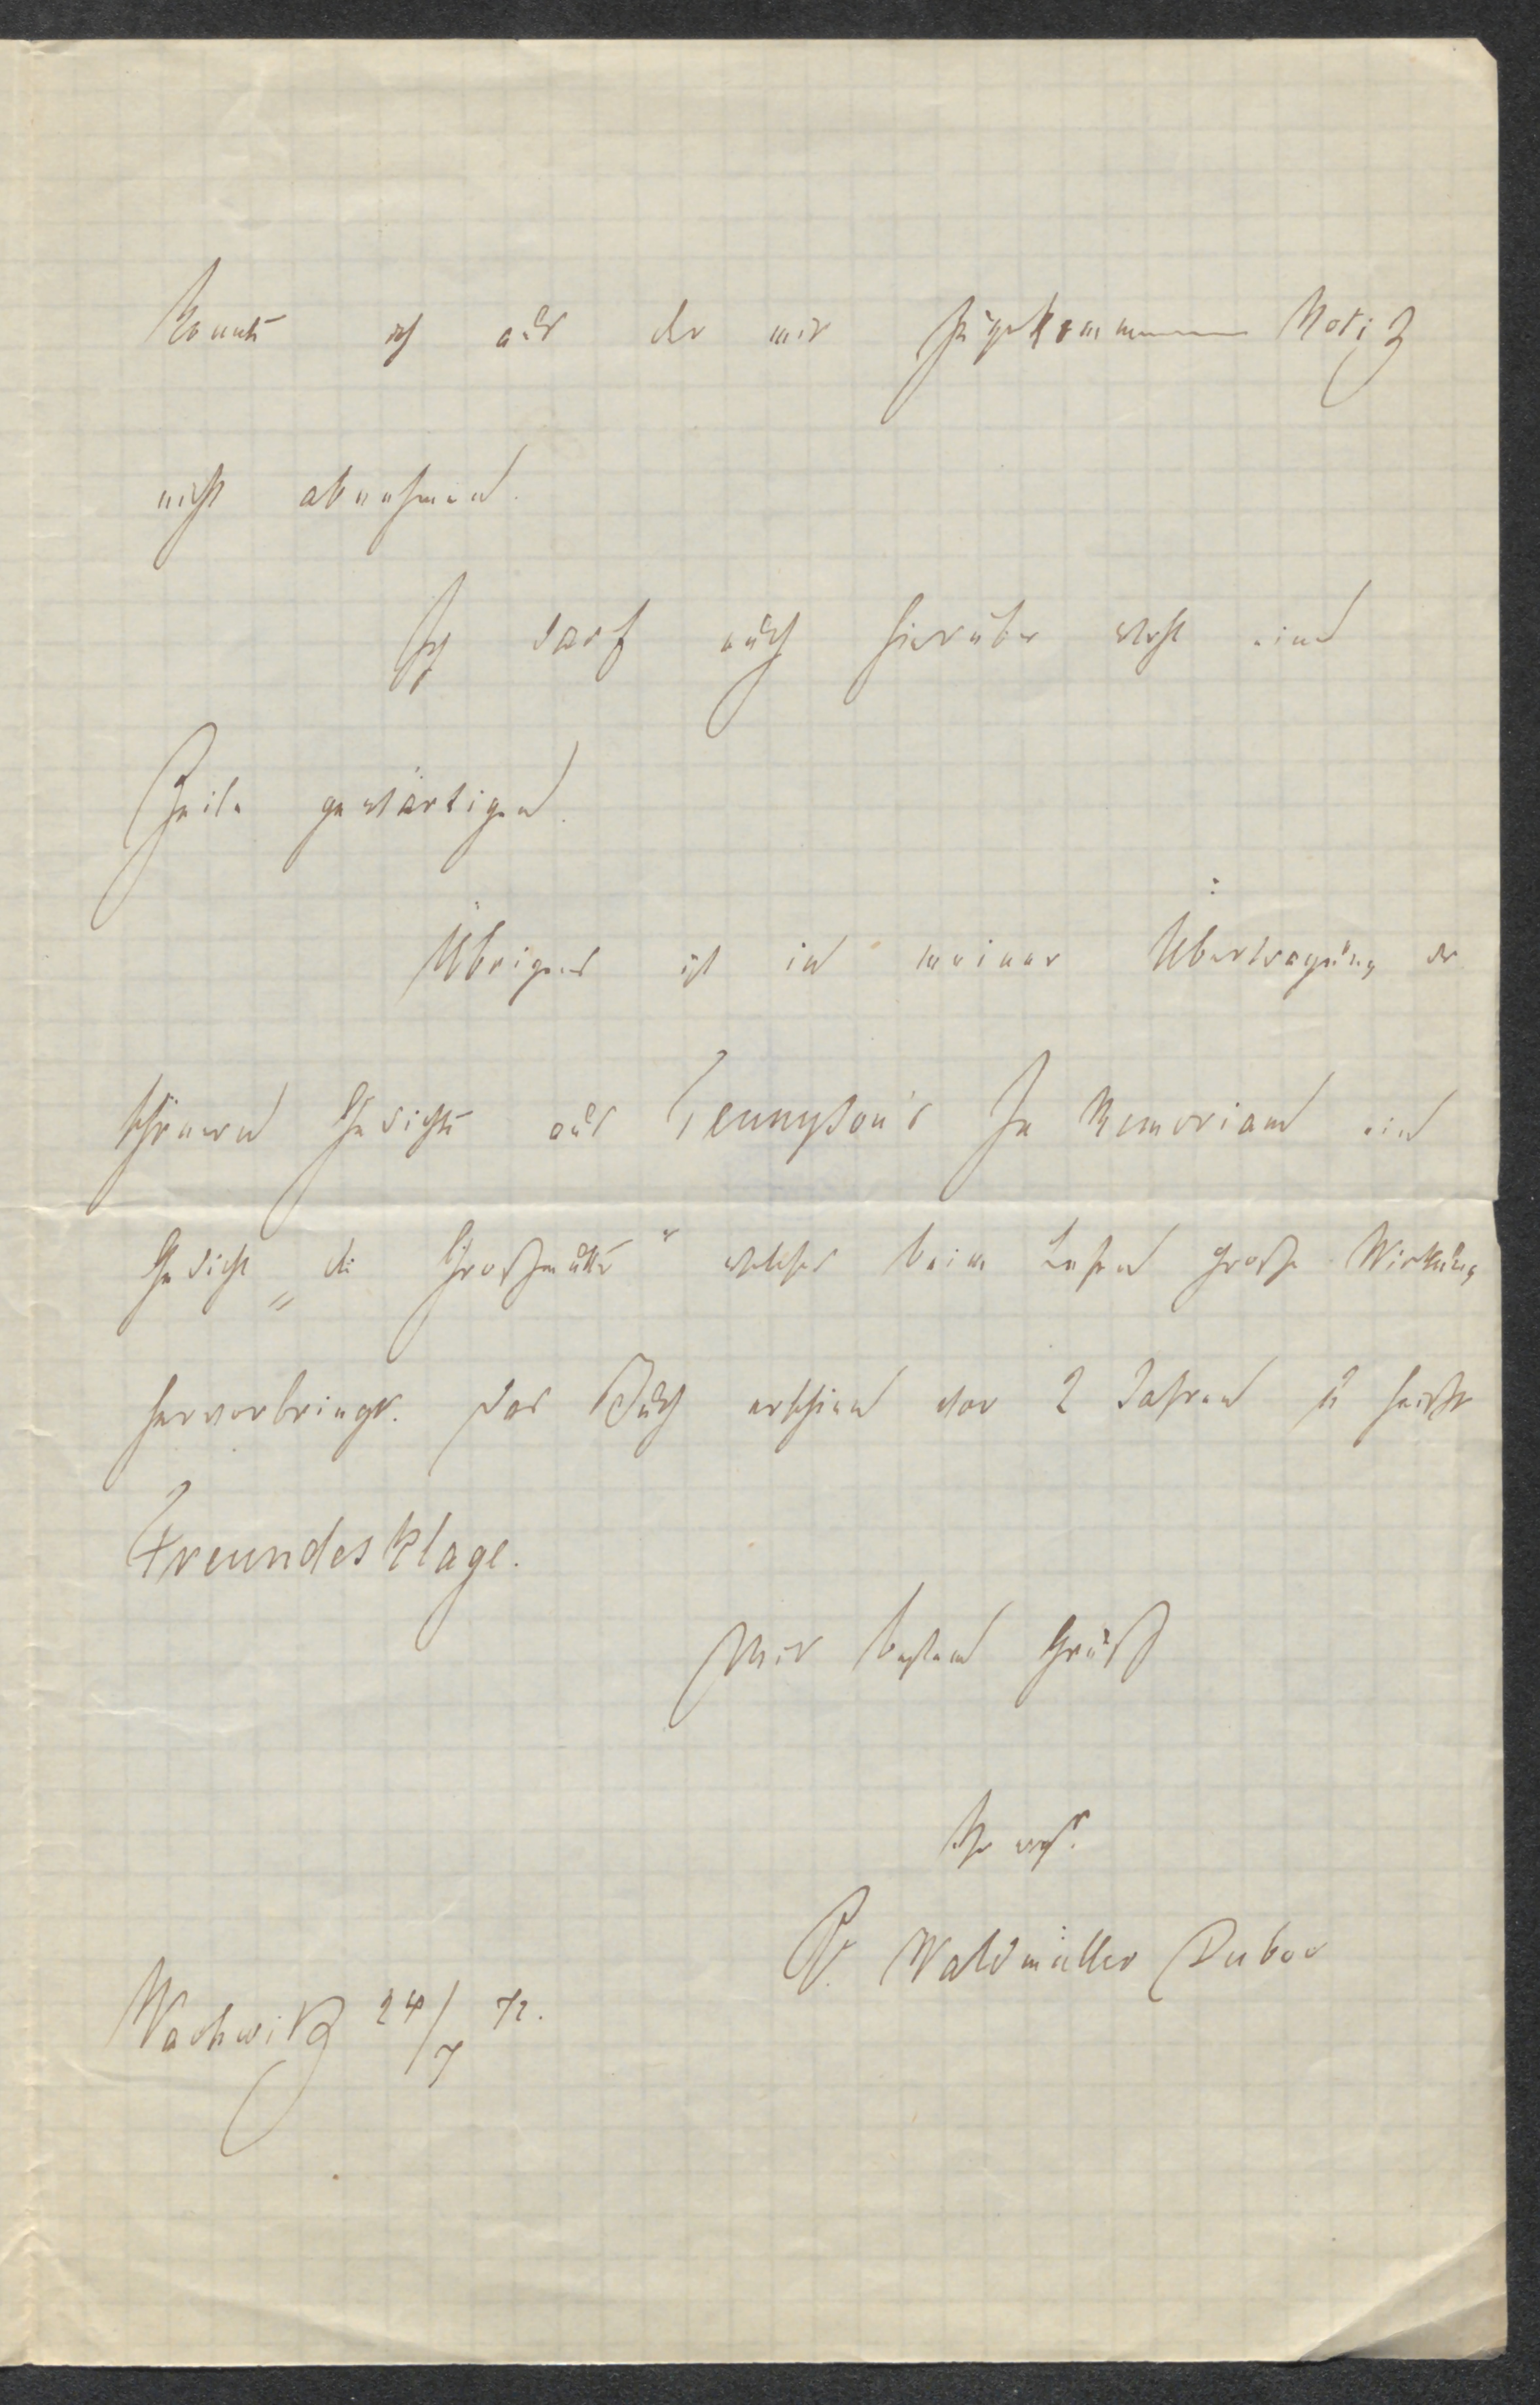 konnte ich aus der mir zugekommenen Notiz
nicht abnehmen.
Ich darf auch hierüber wohl eine
Zeile gewärtigen.
Übrigens ist in meiner Übertragung der
schönern Gedichte aus Tennyson's In Memoriam ein
Gedicht „die Großmutter“ welches beim Lesen große Wirkung
hervorbringt. Das Buch erschien vor 2 Jahren u heißt
Freundesklage.
Mit bestem Gruß
Ihr ergb.
Waldmüller Duboc
Wachwitz 24/7 72.